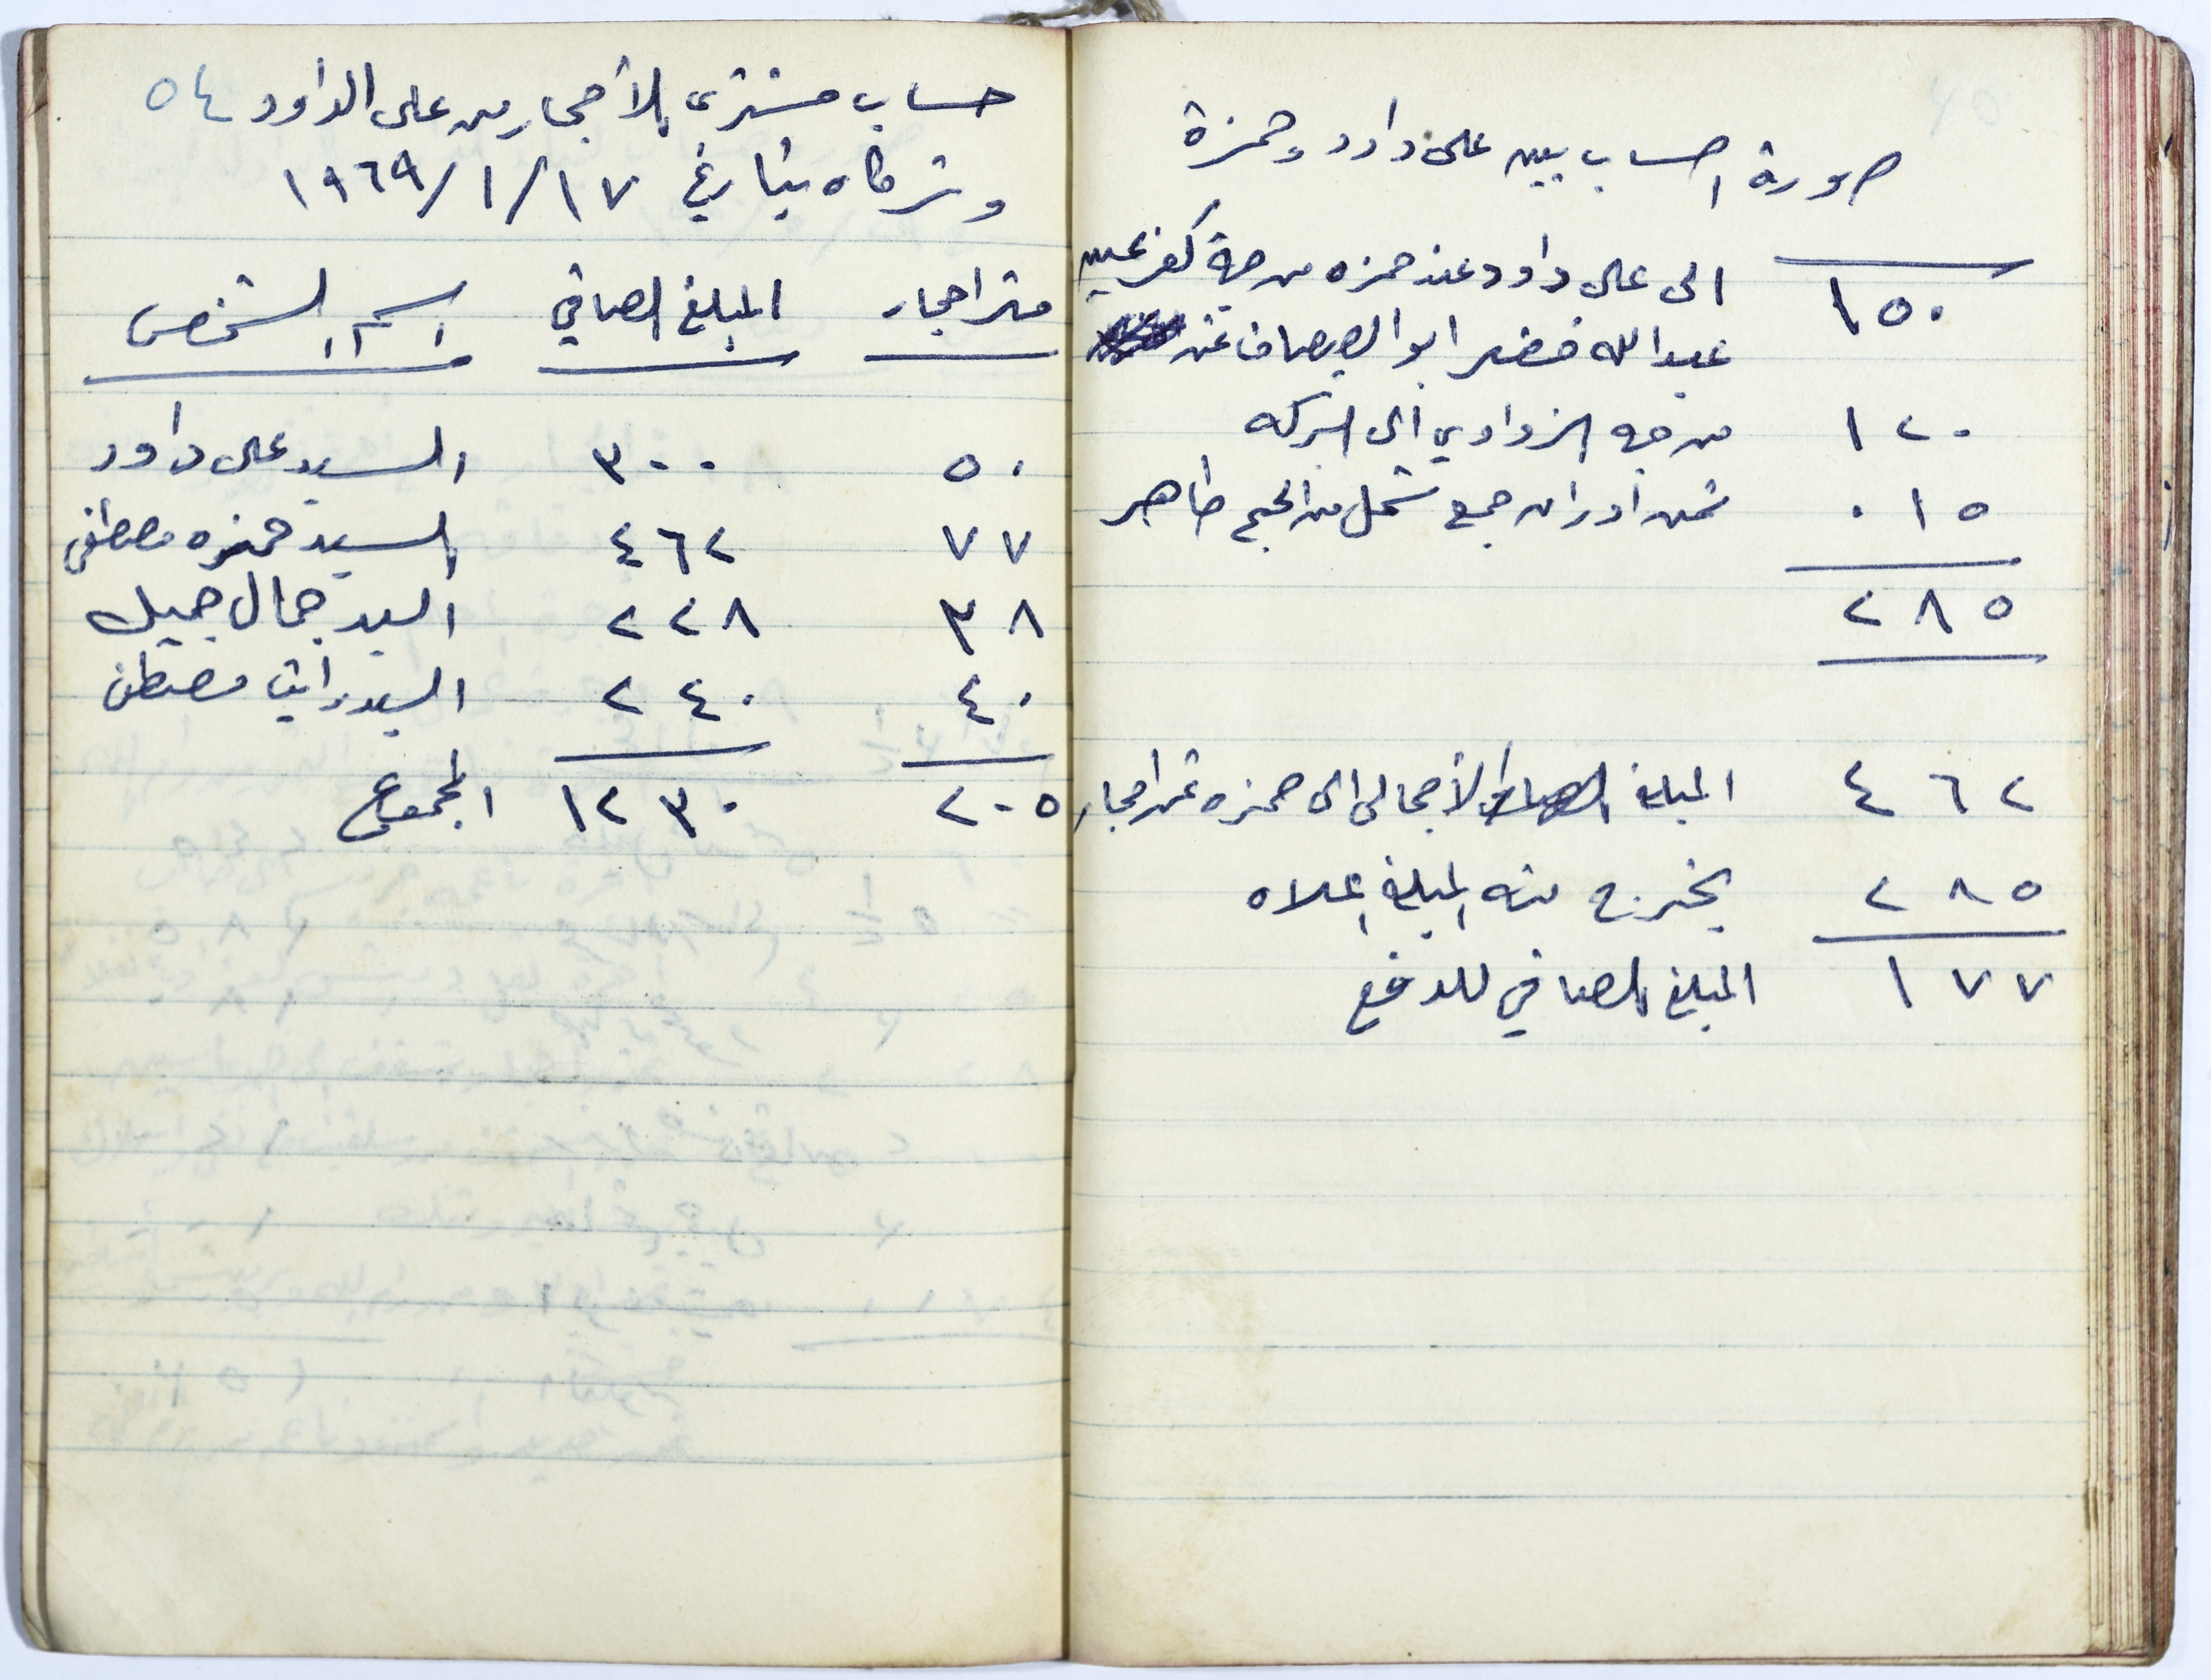 صورة الحساب بين على داود وحمزة
١٥٠ الى على داود عند حمزه من جهة كفر عين
عبدالله خضر ابو الصيصان عن
١٢٠ من جهه الزواوي الى الشركه
٠١٥ ثمن اوزان جمع شمل من الحج طاهر
٢٨٥
٤٦٢ المبلغ الأجمالى الى حمزه ثمن احجار
٢٨٥ يخرج منه المبلغ اعلاه
١٧٧ المبلغ الصافي للدفع
حساب مشترى الأحجار من على الداود ٥٤
وشركاه بتاريخ ١٩٦٩/١/١٧
متر احجار المبلغ الصافي اسم الشخص
٥٠ ٣٠٠ السيد على داود
٧٧ ٤٦٢ السيد حمزه مصطفى
٣٨ ٢٢٨ السيد جمال جميل
٤٠ ٢٤٠ السيد راتب مصطفى
٢٠٥ ١٢٣٠ المجموع